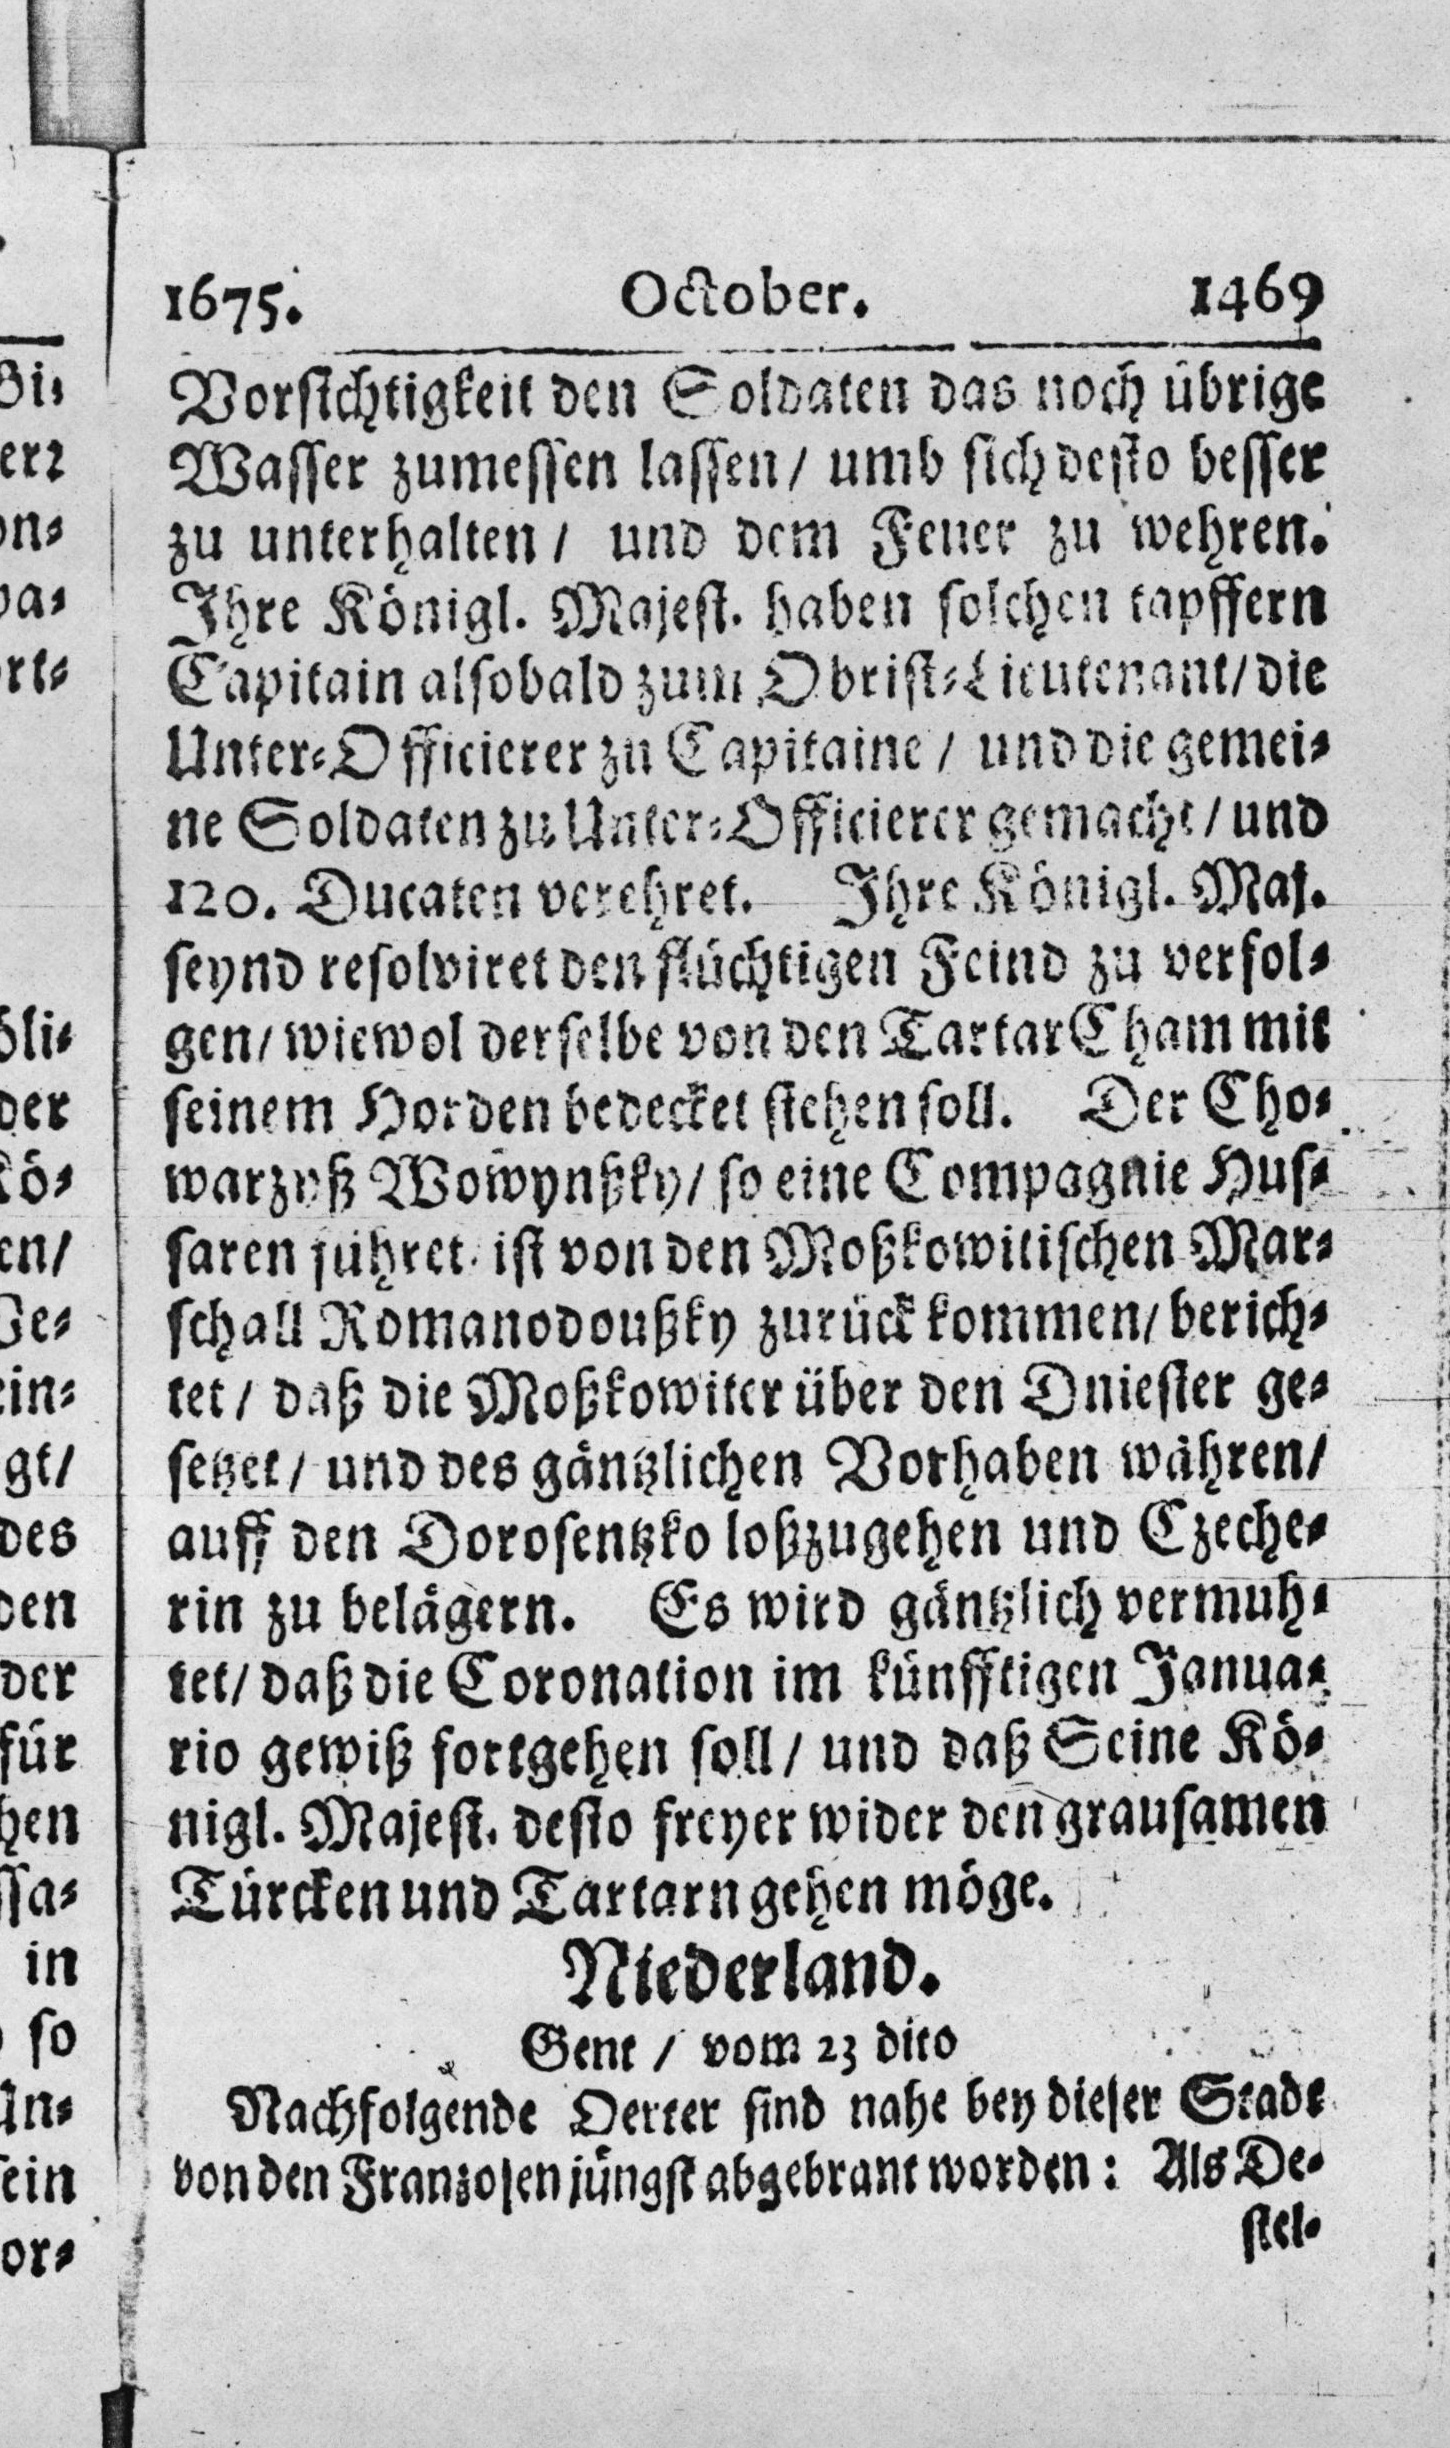 1675. October. 1469
Vorsichtigkeit den Soldaten das noch übrige
Wasser zumessen lassen / umb sich desto besser
zu unterhalten / und dem Feuer zu wehren.
Ihre Königl. Majest. haben solchen tapffern
Capitain alsobald zum Obrist-Lieutenant / die
Unter-Officierer zu Capitaine / und die gemei-
ne Soldaten zu Unter-Officierer gemacht / und
120. Ducaten verehret. Ihre Königl. Maj.
seynd resolviret den flüchtigen Feind zu verfol-
gen / wiewol derselbe von den Tartar Cham mit
seinem Horden bedecket stehen soll. Der Cho-
warzyß Wowynßky / so eine Compagnie Hus-
saren führet. ist von den Moßkowitischen Mar-
schall Romanodoußky zurück kommen / berich-
tet / daß die Moßkowiter über den Dniester ge-
setzet / und des gäntzlichen Vorhaben währen /
auff den Dorosentzko loßzugehen und Czeche-
rin zu belägern. Es wird gäntzlich vermuh-
tet / daß die Coronation im künfftigen Janua-
rio gewiß fortgehen soll / und daß Seine Kö-
nigl. Majest. desto freyer wider den grausamen
Türcken und Tartarn gehen möge.
Niederland.
Gent / vom 23 dito
Nachfolgende Oerter sind nahe bey dieser Stadt
von den Franzosen jüngst abgebrant worden : Als De-
stel-